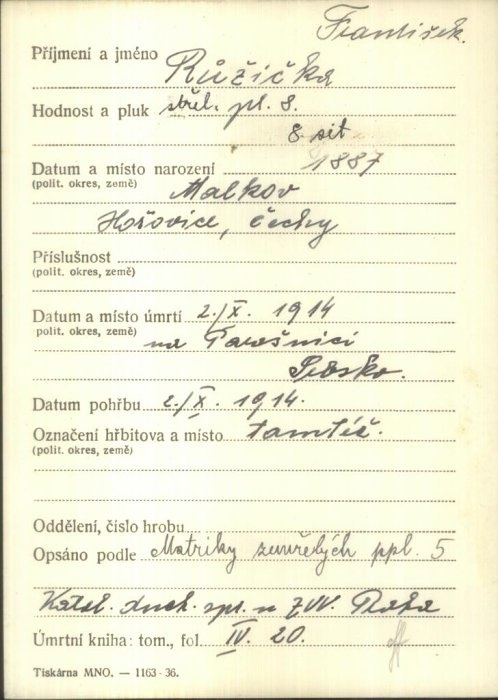 František.
Příjmení a jméno Růžička
Hodnost a pluk střel. pl. 8.
8. sit
Datum a místo narození 1887
(polit. okres, země) Malkov
Hořovice, Čechy
Příslušnost
(polit. okres, země)
Datum a místo úmrtí 2./X. 1914
polit. okres, země) na Parašnici
Srbsko.
Datum pohřbu 2./X. 1914.
Označení hřbitova a místo tamtéž.
(polit. okres, země)
Oddělení, číslo hrobu
Opsáno podle Matriky zemřelých ppl. 5
Katol. duch. spr. u ZVV. Praha
Úmrtní kniha: tom., fol. IV. 20.
Tiskárna MNO. — 1163-36.